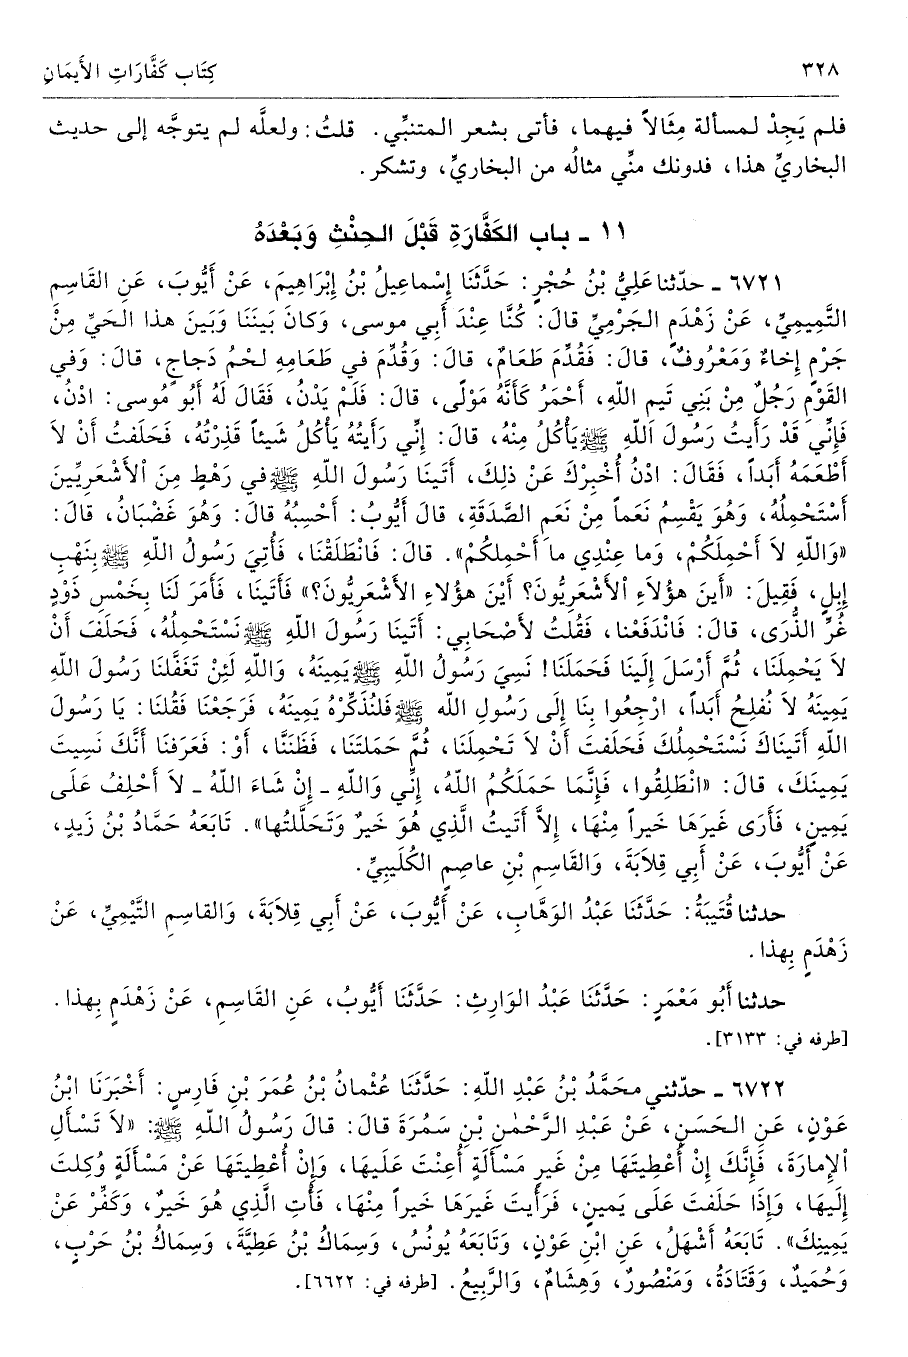 ٣٢٨ كِتَاب كَفَّارَاتِ الأَيمَانِ
فلم يَجِدْ لمسألة مِثَالاً فيهما، فأتى بشعر المتنبِّي. قلتُ: ولعلَّه لم يتوجَّه إلى حديث
البخاريِّ هذا، فدونك منِّي مثالُه من البخاريِّ، وتشكر.
١١ - باب الكَفَّارَةِ قَبْلَ الحِنْثِ وَبَعْدَهُ
٦٧٢١ - حدّثنا عَلِيُّ بْنُ حُجْرٍ: حَدَّثَنَا إِسْماعِيلُ بْنُ إِبْرَاهِيمَ، عَنْ أَيُّوبَ، عَنِ القَاسِمِ
التَّمِيمِيِّ، عَنْ زَهْدَمٍ الجَرْمِيِّ قالَ: كُنَّا عِنْدَ أَبِي موسى، وَكانَ بَيْنَنَا وَبَينَ هذا الحَيِّ مِنْ
جَرْمٍ إِخاءٌ وَمَعْرُوفٌ، قالَ: فَقُدِّمَ طَعَامٌ، قالَ: وَقُدِّمَ في طَعَامِهِ لَحْمُ دَجاجٍ، قالَ: وَفي
القَوْمِ رَجُلٌ مِنْ بَنِي تَيمِ اللّهِ، أَحْمَرُ كَأَنَّهُ مَوْلًى، قالَ: فَلَمْ يَدْنُ، فَقَالَ لَهُ أَبُو مُوسى: ادْنُ،
فَإِنِّي قَدْ رَأَيتُ رَسُولَ اللّهِ ﷺ يَأْكُلُ مِنْهُ، قالَ: إِنِّي رَأَيتُهُ يَأْكُلُ شَيئاً قَذِرْتُهُ، فَحَلَفتُ أَنْ لاَ
أَطْعَمَهُ أَبَداً، فَقَالَ: ادْنُ أُخْبِرْكَ عَنْ ذلِكَ، أَتَينَا رَسُولَ اللّهِ ﷺ في رَهْطٍ مِنَ الأَشْعَرِيِّينَ
أَسْتَحْمِلُهُ، وَهُوَ يَقْسِمُ نَعَماً مِنْ نَعَمِ الصَّدَقَةِ، قالَ أَيُّوبُ: أَحْسِبُهُ قالَ: وَهُوَ غَضْبَانُ، قالَ:
«وَاللّهِ لاَ أَحْمِلُكُمْ، وَما عِنْدِي ما أَحْمِلُكُمْ». قالَ: فَانْطَلَقْنَا، فَأُتِيَ رَسُولُ اللّهِ ﷺ بِنَهْبِ
إِبِلٍ، فَقِيلَ: «أَينَ هؤُلاَءِ الأَشْعَرِيُّونَ؟ أَيْنَ هؤُلاءِ الأَشْعَرِيُّونَ؟» فَأَتَينَا، فَأَمَرَ لَنَا بِخَمْسِ ذَوْدٍ
غُرِّ الذُّرَى، قالَ: فَانْدَفَعْنا، فَقُلتُ لأَصْحَابِي: أَتَينَا رَسُولَ اللّهِ ﷺ نَسْتَحْمِلُهُ، فَحَلَفَ أَنْ
لاَ يَحْمِلَنَا، ثُمَّ أَرْسَلَ إِلَينَا فَحَمَلَنَا! نَسِيَ رَسُولُ اللّهِ ﷺ يَمِينَهُ، وَاللّهِ لَئِنْ تَغَفَّلنَا رَسُولَ اللّهِ
يَمِينَهُ لاَ نُفلِحُ أَبَداً، ارْجِعُوا بِنَا إِلَى رَسُولِ اللّه ﷺ فَلنُذَكِّرْهُ يَمِينَهُ، فَرَجَعْنَا فَقُلنَا: يَا رَسُولَ
اللّهِ أَتَينَاكَ نَسْتَحْمِلُكَ فَحَلَفتَ أَنْ لاَ تَحْمِلَنَا، ثُمَّ حَمَلتَنَا، فَظَنَنَّا، أَوْ: فَعَرَفنَا أَنَّكَ نَسِيتَ
يَمِينَكَ، قالَ: «انْطَلِقُوا، فَإِنَّمَا حَمَلَكُمُ اللّهُ، إِنِّي وَاللّهِ - إِنْ شَاءَ اللّهُ - لاَ أَحْلِفُ عَلَى
يَمِينٍ، فَأَرَى غَيرَهَا خَيراً مِنْهَا، إِلاَّ أَتَيتُ الَّذِي هُوَ خَيرٌ وَتَحَلَّلتُها». تَابَعَهُ حَمَّادُ بْنُ زَيدٍ،
عَنْ أَيُّوبَ، عَنْ أَبِي قِلاَبَةَ، وَالقَاسِمِ بْنِ عاصِمٍ الكُلَيبِيِّ.
حدثنا قُتَيبَةُ: حَدَّثَنَا عَبْدُ الوَهَّابِ، عَنْ أَيُّوبَ، عَنْ أَبِي قِلاَبَةَ، وَالقاسِمِ التَّيْمِيِّ، عَنْ
زَهْدَمٍ بِهذا.
حدثنا أَبُو مَعْمَرٍ: حَدَّثَنَا عَبْدُ الوَارِثِ: حَدَّثَنَا أَيُّوبُ، عَنِ القَاسِمِ، عَنْ زَهْدَمٍ بِهذا.
[طرفه في: ٣١٣٣].
٦٧٢٢ - حدّثني محَمَّدُ بْنُ عَبْدِ اللّهِ: حَدَّثَنَا عُثْمانُ بْنُ عُمَرَ بْنِ فَارِسٍ: أَخْبَرَنَا ابْنُ
عَوْنٍ، عَنِ الحَسَنِ، عَنْ عَبْدِ الرَّحْمٰنِ بْنِ سَمُرَةَ قالَ: قالَ رَسُولُ اللّهِ ﷺ: «لاَ تَسْأَلِ
الإِمارَةَ، فَإِنَّكَ إِنْ أُعْطِيتَهَا مِنْ غَيرِ مَسْأَلَةٍ أُعِنْتَ عَلَيهَا، وَإِنْ أُعْطِيتَهَا عَنْ مَسْأَلَةٍ وُكِلتَ
إِلَيهَا، وَإِذَا حَلَفتَ عَلَى يَمينٍ، فَرَأَيتَ غَيرَهَا خَيراً مِنْهَا، فَأْتِ الَّذِي هُوَ خَيرٌ، وَكَفِّرْ عَنْ
يَمِينِكَ». تَابَعَهُ أَشْهَلُ، عَنِ ابْنِ عَوْنٍ، وَتَابَعَهُ يُونُسُ، وَسِماكُ بْنُ عَطِيَّةَ، وَسِماكُ بْنُ حَرْبٍ،
وَحُمَيدٌ، وَقَتَادَةُ، وَمَنْصُورٌ، وَهِشَامٌ، وَالرَّبِيعُ. [طرفه في: ٦٦٢٢].